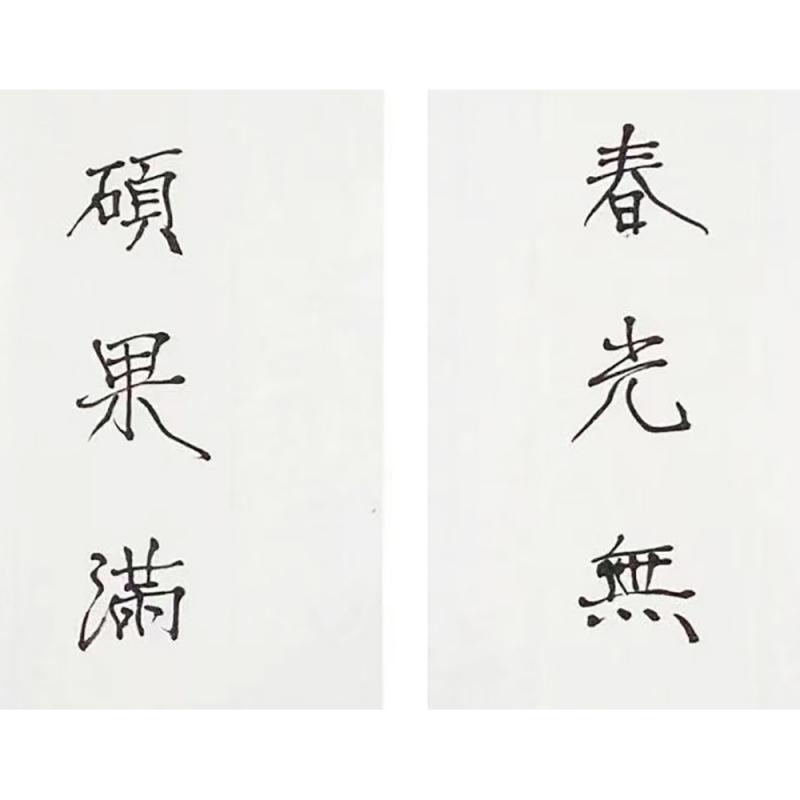 春光無
碩果滿